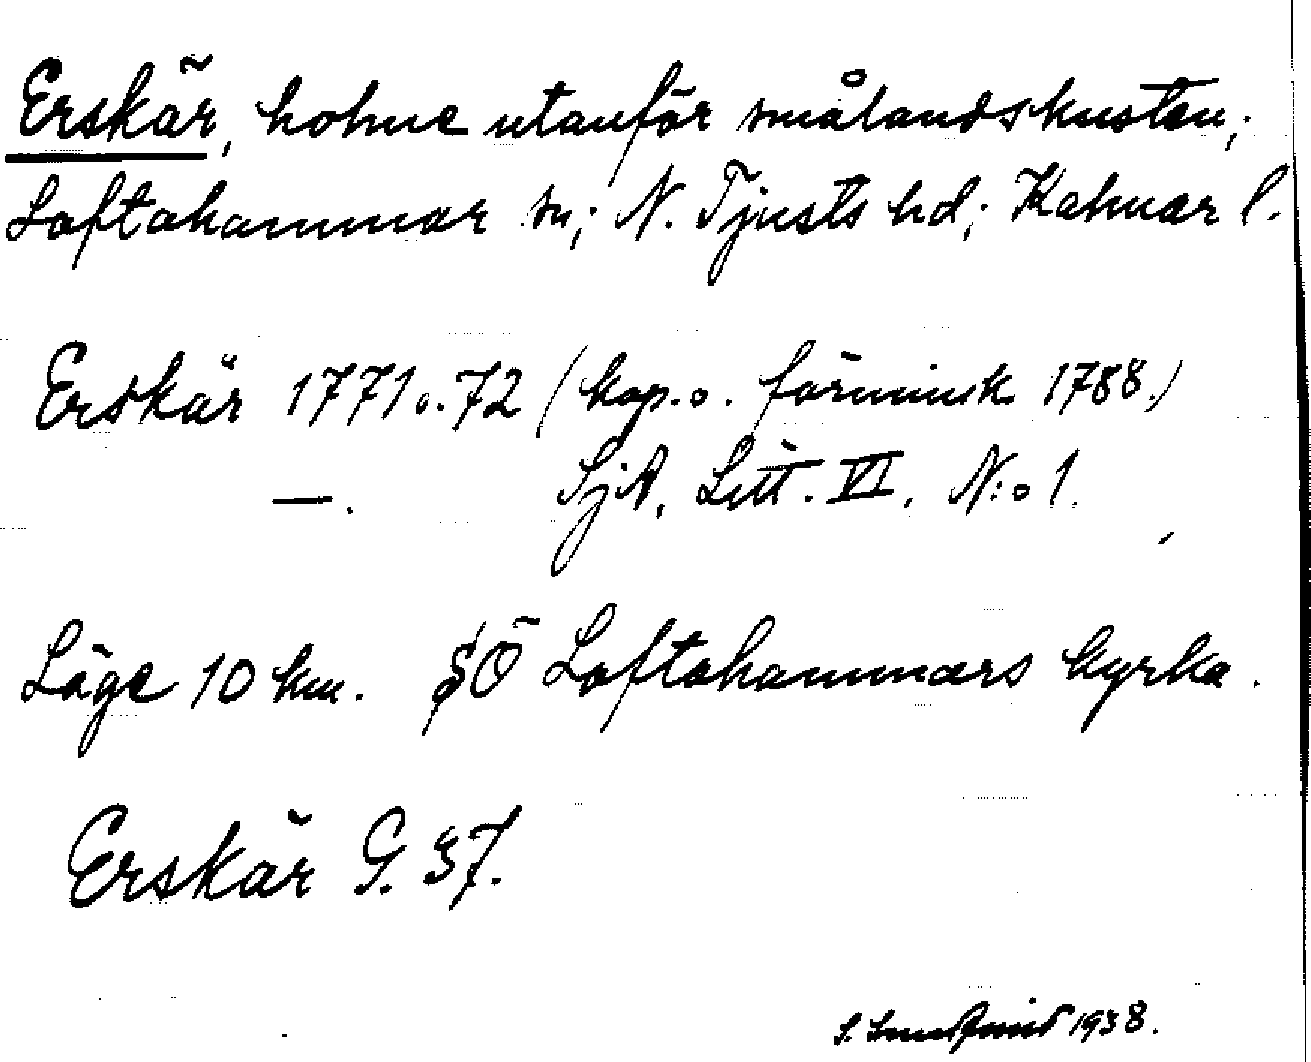 Erskär, holme utanför smålandskusten;
Loftahammar sn; N. Tjusts hd; Kalmar l.
Erskär 1771 o. 72 (kop. o. förminsk 1788.)
—. SjA, Litt. VI, N:o 1.
Läge 10 km. SÖ Loftahammars kyrka.
Erskär G. 37.
S. 1938.